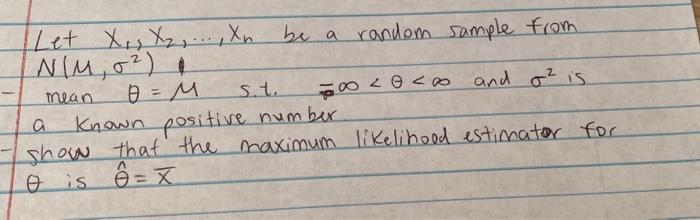 Let X₁, X₂, ..., Xn be a random sample from
N(M, σ²)
- mean θ = M s.t. -∞ < θ < ∞ and σ² is
a known positive number.
- show that the maximum likelihood estimator for
θ is θ̂ = x̄